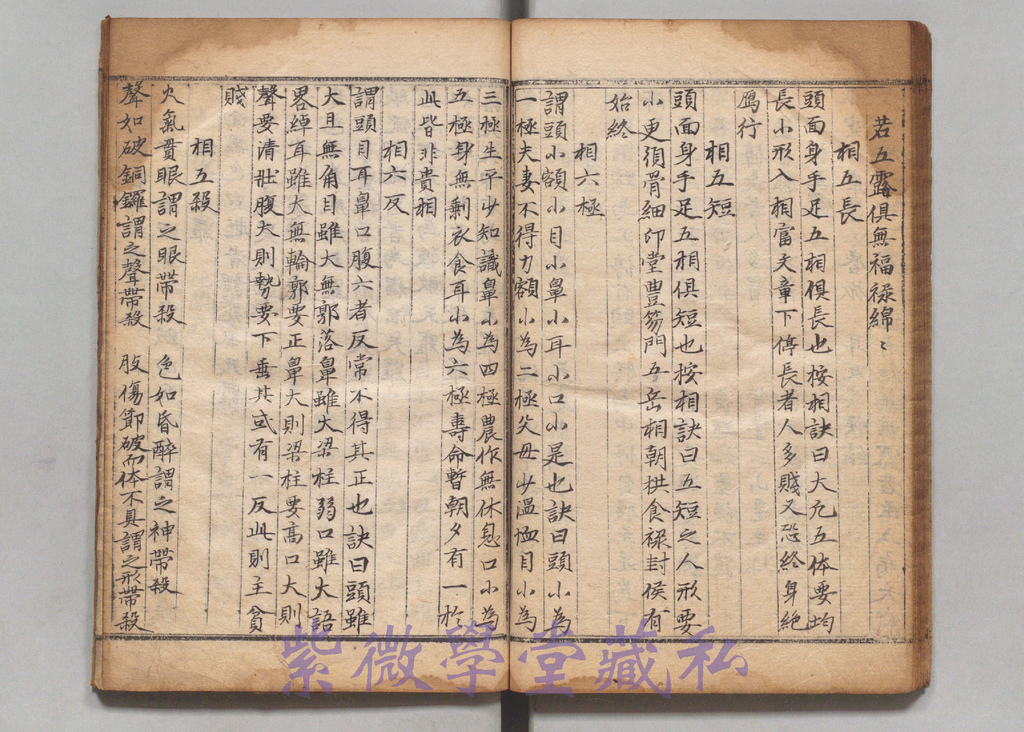 若五露俱無福祿綿〻
相五長
頭面身手足五相俱長也按相訣曰大凢五体要均
長小形入相富文章下停長者人多賤又恐終身絶
鴈行
相五短
頭面身手足五相俱短也按相訣曰五短之人形要
小更須骨細印堂豊笏門五岳相朝拱食祿封侯有
始終
相六極
謂頭小額小目小鼻小耳小口小是也訣曰頭小為
一極夫妻不得力額小為二極父母少温恤目小為
三極生平少知識鼻小為四極農作無休息口小為
五極身無剩衣食耳小為六極壽命暫朝夕有一於
此皆非貴相
相六反
謂頭目耳鼻口腹六者反常不得其正也訣曰頭雖
大且無角目雖大無郭落鼻雖大梁柱弱口雖大語
畧綽耳雖大無輪郭要正鼻大則梁柱要高口大則
聲要清壯腹大則勢要下垂其或有一反此則主貧
賤
相五殺
火氣貫眼謂之眼帶殺 色如昏醉謂之神帶殺
聲如破銅鑼謂之聲帶殺 肢傷節破而体不具謂之形帶殺
紫微學堂藏私